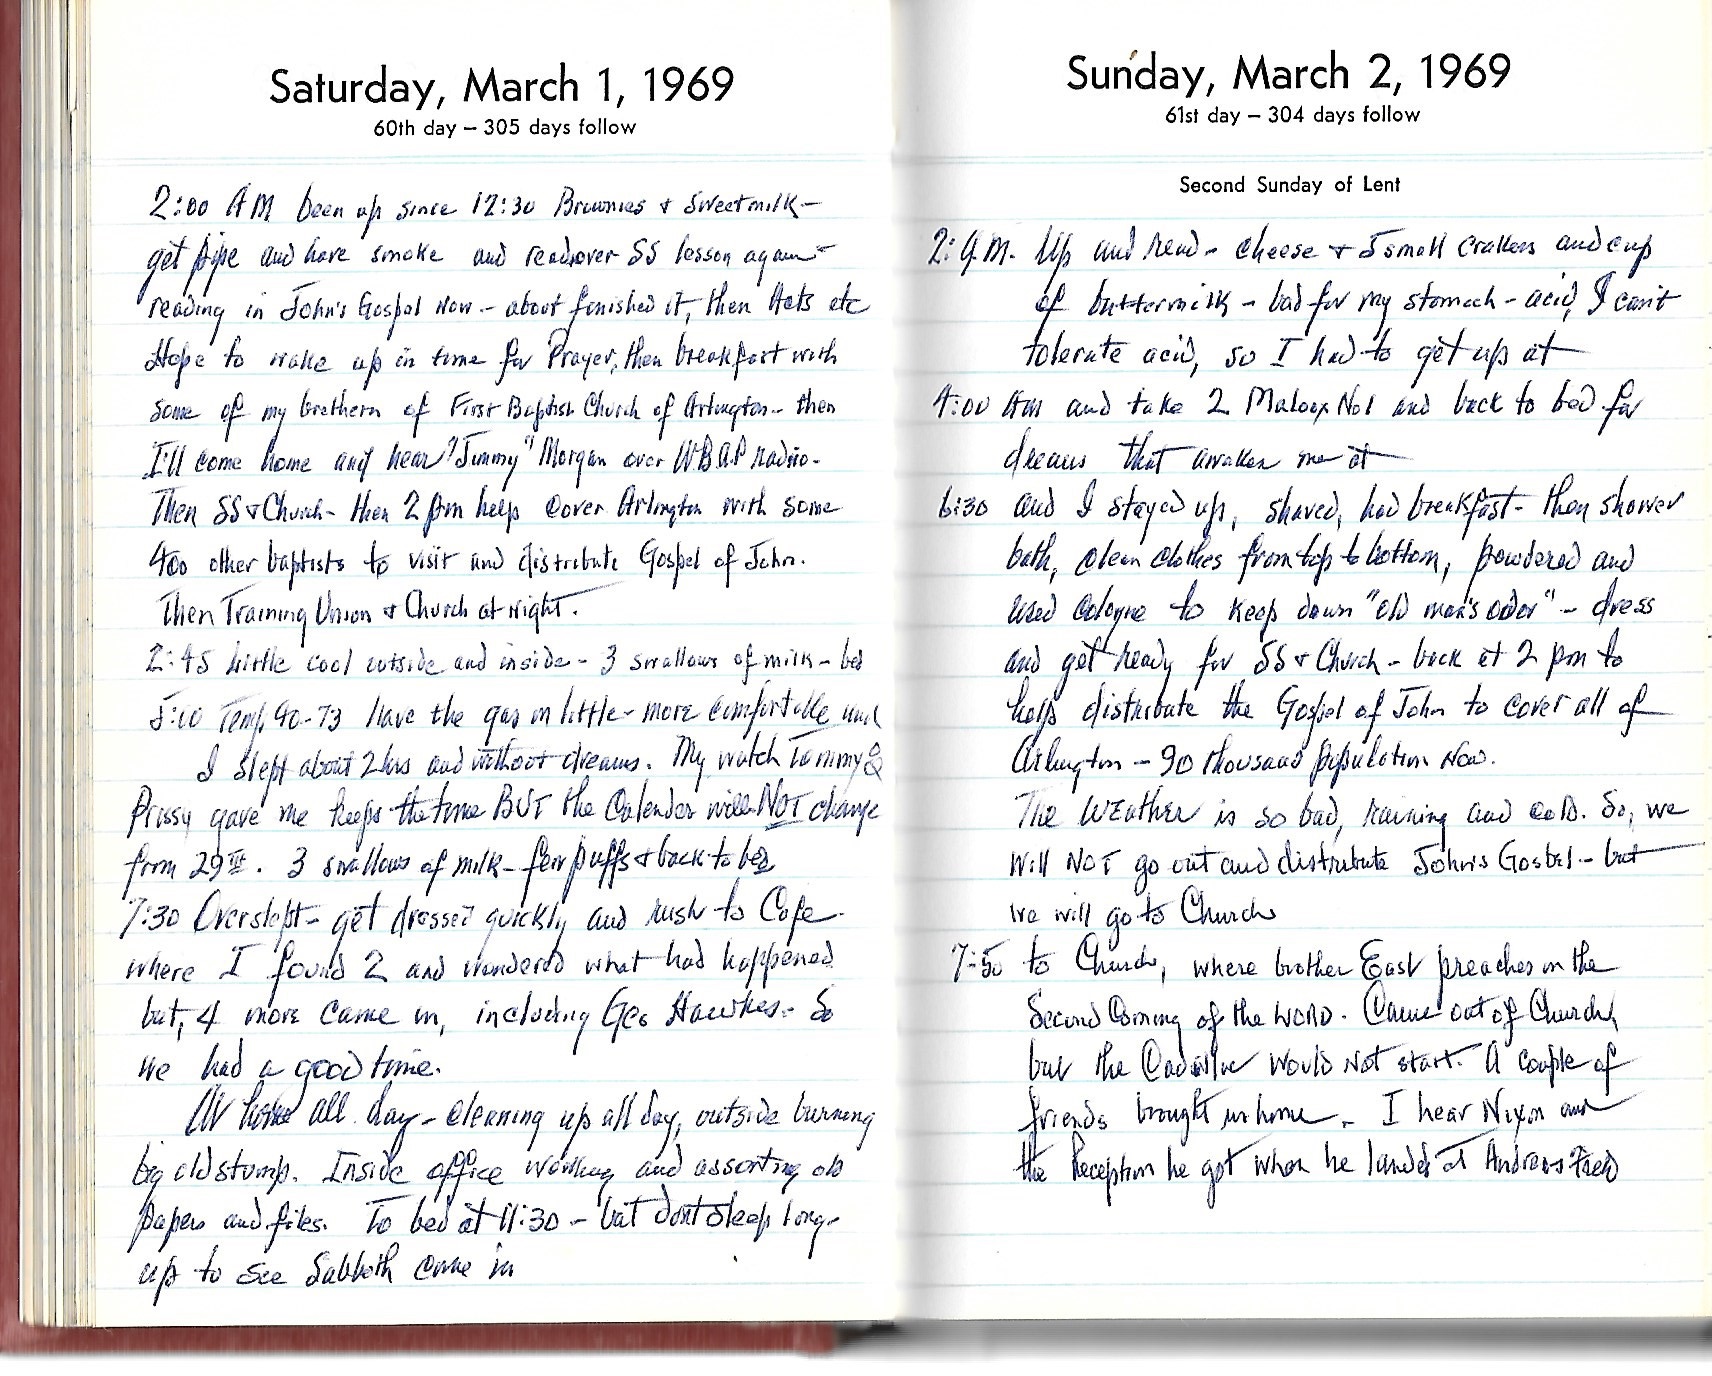 Saturday, March 1, 1969
60th day – 305 days follow
2:00 AM been up since 12:30 Brownies & Sweetmilk –
get pipe and have smoke and read over SS lesson again –
reading in John's Gospel Now – about finished it, then Acts etc
Hope to wake up in time for Prayer, then breakfast with
some of my brethern of First Baptist Church of Arlington – then
I'll come home and hear "Jimmy" Morgan over WBAP radio –
Then SS & Church – then 2 pm help cover Arlington with some
400 other baptists to visit and distribute Gospel of John.
Then Training Union & Church at night.
2:45 little cool outside and inside – 3 swallows of milk – bed
5:00 Temp 40-73 have the gas on little – more comfortable and
I slept about 2 hrs and without dreams. My watch Tommy &
Prissy gave me keeps the time BUT the Calender will NOT change
from 29th. 3 swallows of milk – few puffs & back to bed
7:30 Overslept – get dressed quickly and rush to Cafe
where I found 2 and wondered what had happened
but, 4 more came in, including Geo Hawkes. So
we had a good time.
At home all day – cleaning up all day, outside burning
big old stump. Inside office working and assorting old
papers and files. To bed at 11:30 – but dont sleep long –
up to see Sabbath come in
Sunday, March 2, 1969
61st day – 304 days follow
Second Sunday of Lent
2: A.M. Up and read – cheese & 5 small crakers and cup
of buttermilk – bad for my stomach – acid, I can't
tolerate acid, so I had to get up at
4:00 AM and take 2 Maloox No1 and back to bed for
dreams that awaken me at
6:30 and I stayed up, shaved, had breakfast – then shower
bath, clean clothes from top to bottom, powdered and
used cologne to keep down "old man's odor" – dress
and get ready for SS & Church – back at 2 pm to
help distribute the Gospel of John to cover all of
Arlington – 90 thousand population Now.
The WEather is so bad, raining and cold. So, we
will NOT go out and distribute John's Gospel – but
we will go to Church
7:50 to Church, where brother East preaches on the
Second Coming of the WORD. Came out of Church,
but the Cadillac would not start. A couple of
friends brought us home. I hear Nixon and
the Reception he got when he landed at Andrews Field